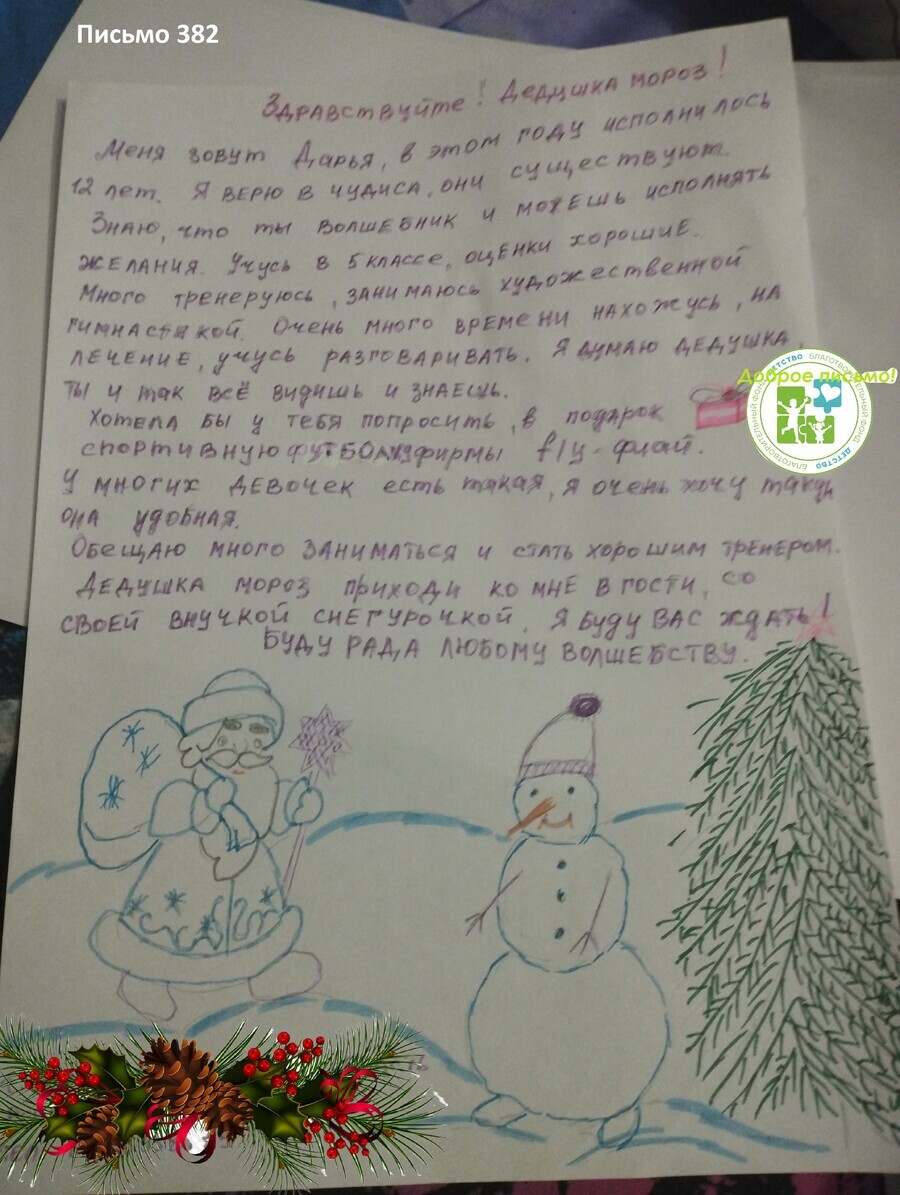 Письмо 382
Здравствуйте! Дедушка мороз!
Меня зовут Дарья, в этом году исполнилось
12 лет. Я верю в чудиса, они существуют.
Знаю, что ты волшебник и можешь исполнять
желания. Учусь в 5 классе, оценки хорошие.
Много тренеруюсь, занимаюсь художественной
гимнастикой. Очень много времени нахожусь, на
лечение, учусь разговаривать. Я думаю дедушка,
ты и так всё видишь и знаешь.
Хотела бы у тебя попросить, в подарок
спортивную футболку фирмы f/y-флай.
У многих девочек есть такая, я очень хочу такую
она удобная.
Обещаю много заниматься и стать хорошим тренером.
Дедушка мороз приходи ко мне в гости, со
своей внучкой снегурочкой. Я буду вас ждать!
Буду рада любому волшебству.
Доброе письмо!
БЛАГОТВОРИТЕЛЬНЫЙ ФОНД ДЕТСТВО БЛАГОТВОРИТЕЛЬНЫЙ ФОНД ДЕТСТВО